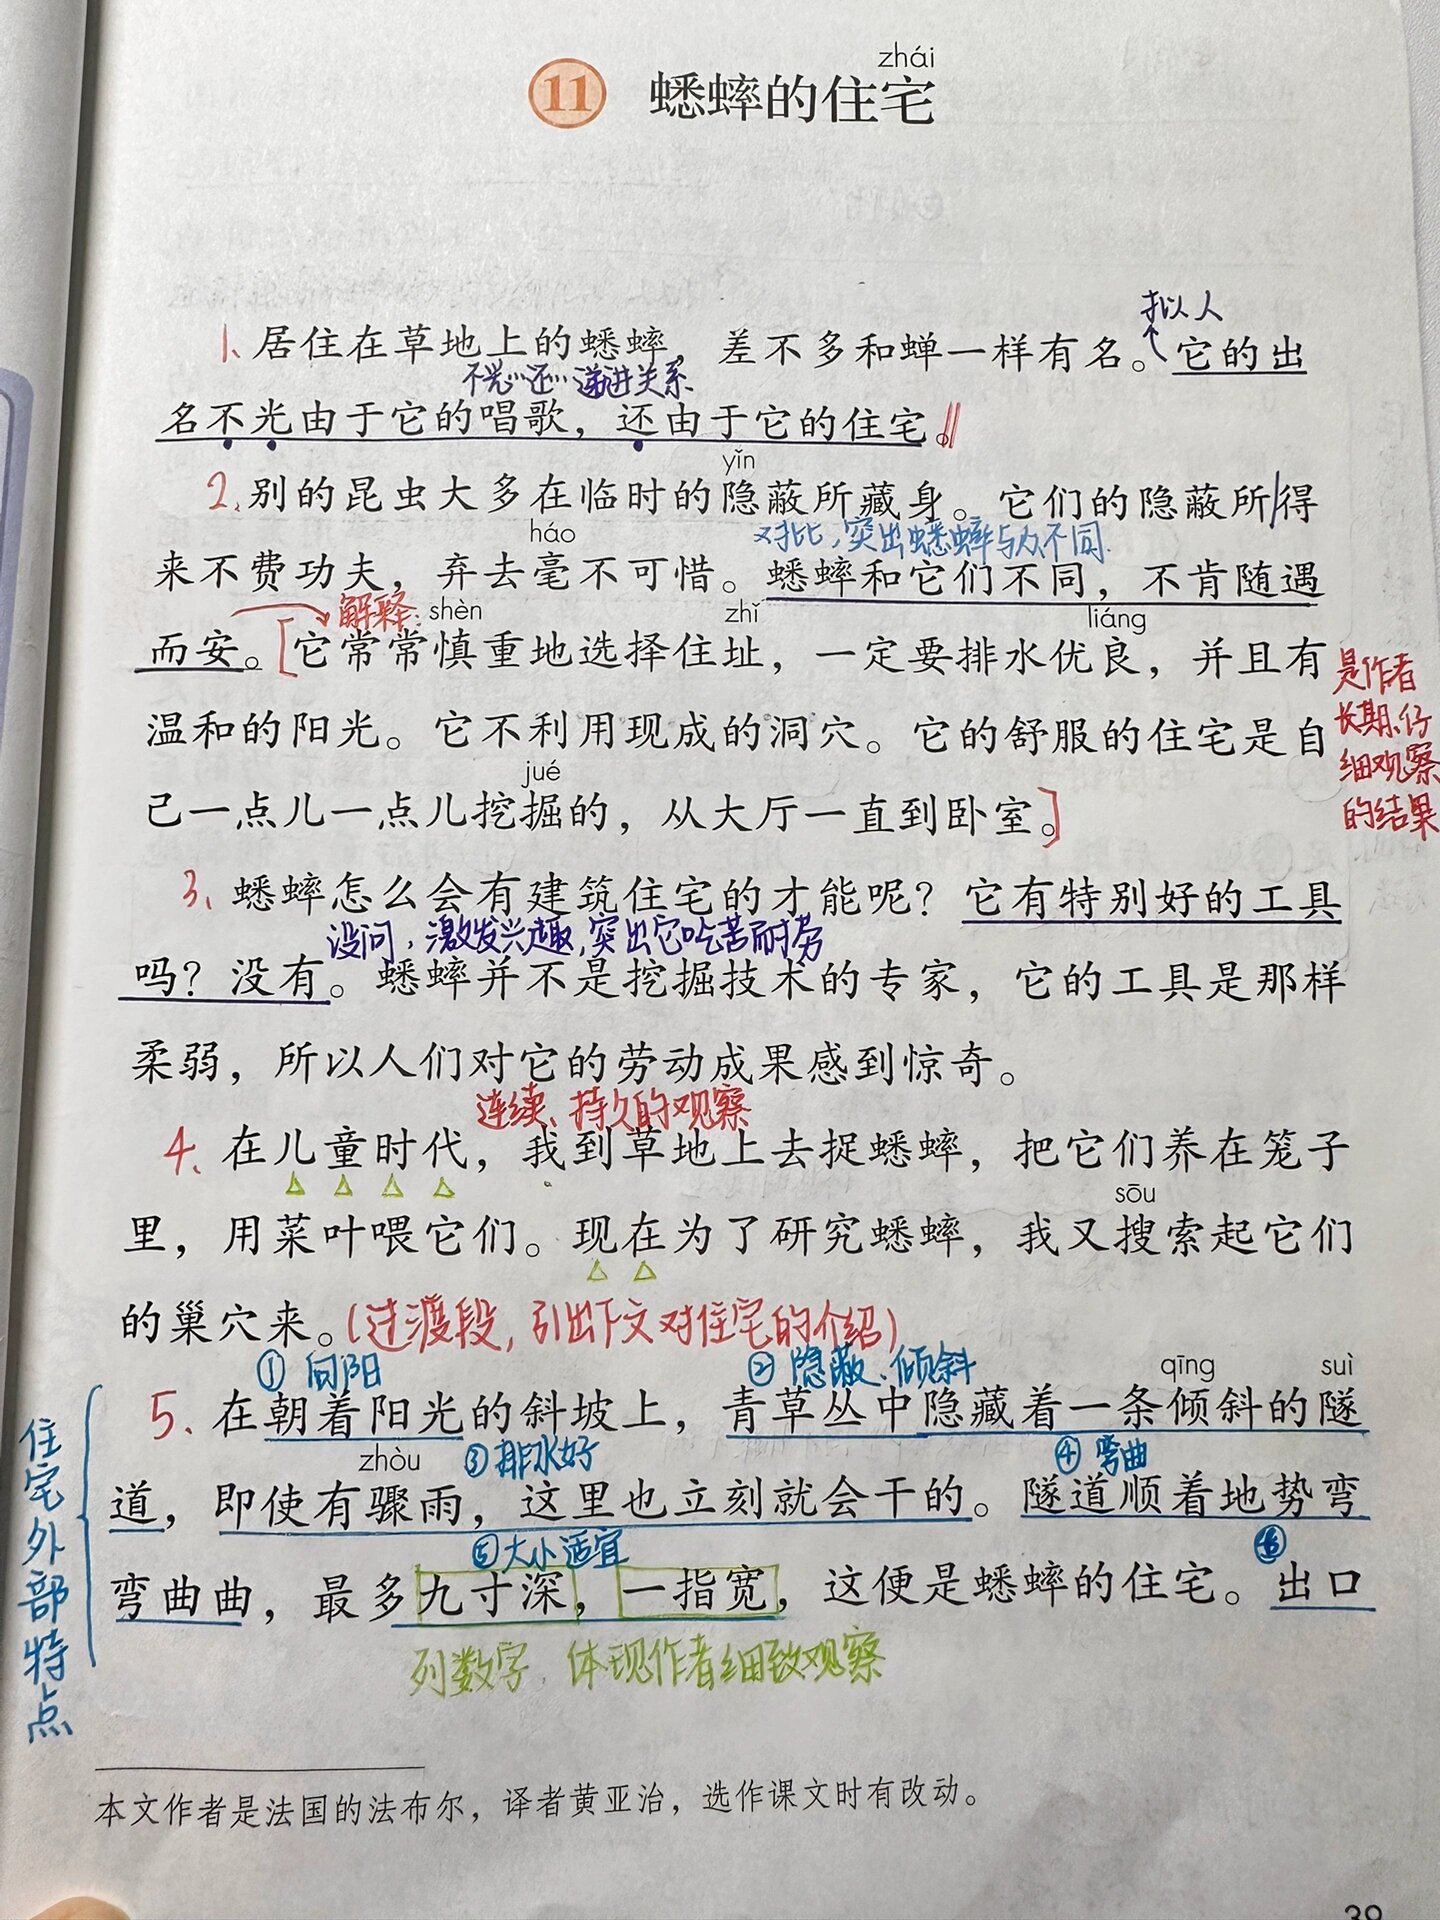 zhái
11 蟋蟀的住宅
拟人
1、居住在草地上的蟋蟀，差不多和蝉一样有名。它的出
不光…还…递进关系
名不光由于它的唱歌，还由于它的住宅。
yǐn
2、别的昆虫大多在临时的隐蔽所藏身。它们的隐蔽所得
háo
对比，突出蟋蟀与众不同
来不费功夫，弃去毫不可惜。蟋蟀和它们不同，不肯随遇
解释： shèn zhǐ liáng
而安。[它常常慎重地选择住址，一定要排水优良，并且有
是作者
长期、仔
细观察
的结果
温和的阳光。它不利用现成的洞穴。它的舒服的住宅是自
jué
己一点儿一点儿挖掘的，从大厅一直到卧室。]
3、蟋蟀怎么会有建筑住宅的才能呢？它有特别好的工具
设问，激发兴趣，突出它吃苦耐劳
吗？没有。蟋蟀并不是挖掘技术的专家，它的工具是那样
柔弱，所以人们对它的劳动成果感到惊奇。
连续、持久的观察
4、在儿童时代，我到草地上去捉蟋蟀，把它们养在笼子
sōu
里，用菜叶喂它们。现在为了研究蟋蟀，我又搜索起它们
的巢穴来。(过渡段，引出下文对住宅的介绍)
①向阳 ②隐蔽、倾斜 qīng suì
住宅外部特点
5、在朝着阳光的斜坡上，青草丛中隐藏着一条倾斜的隧
zhòu ③排水好 ④弯曲
道，即使有骤雨，这里也立刻就会干的。隧道顺着地势弯
⑤大小适宜 ⑥
弯曲曲，最多九寸深，一指宽，这便是蟋蟀的住宅。出口
列数字，体现作者细致观察
本文作者是法国的法布尔，译者黄亚治，选作课文时有改动。
39